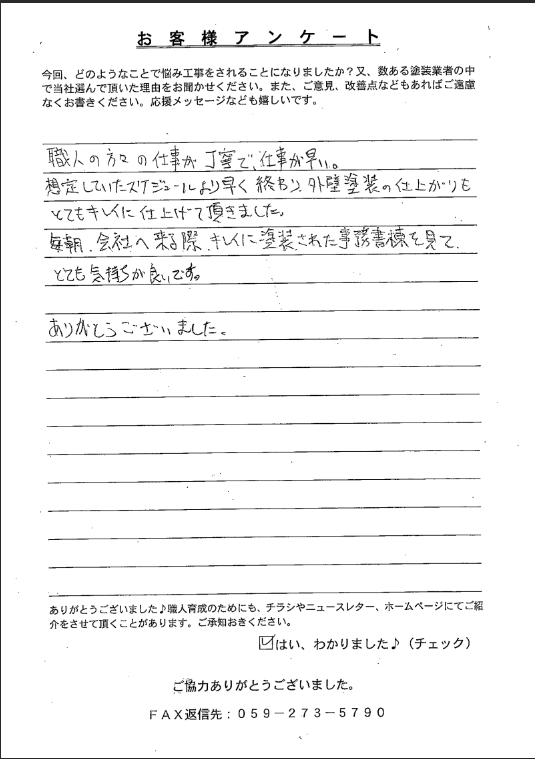 お客様アンケート
今回、どのようなことで悩み工事をされることになりましたか？又、数ある塗装業者の中
で当社選んで頂いた理由をお聞かせください。また、ご意見、改善点などもあればご遠慮
なくお書きください。応援メッセージなども嬉しいです。
職人の方々の仕事が丁寧で、仕事が早い。
想定していたスケジュールより早く終わり、外壁塗装の仕上がりも
とてもキレイに仕上げて頂きました。
毎朝、会社へ来る際、キレイに塗装された事務書棟を見て、
とても気持ちが良いです。
ありがとうございました。
ありがとうございました♪職人育成のためにも、チラシやニュースレター、ホームページにてご紹
介をさせて頂くことがあります。ご承知おきください。
☑はい、わかりました♪（チェック）
ご協力ありがとうございました。
ＦＡＸ返信先：０５９－２７３－５７９０